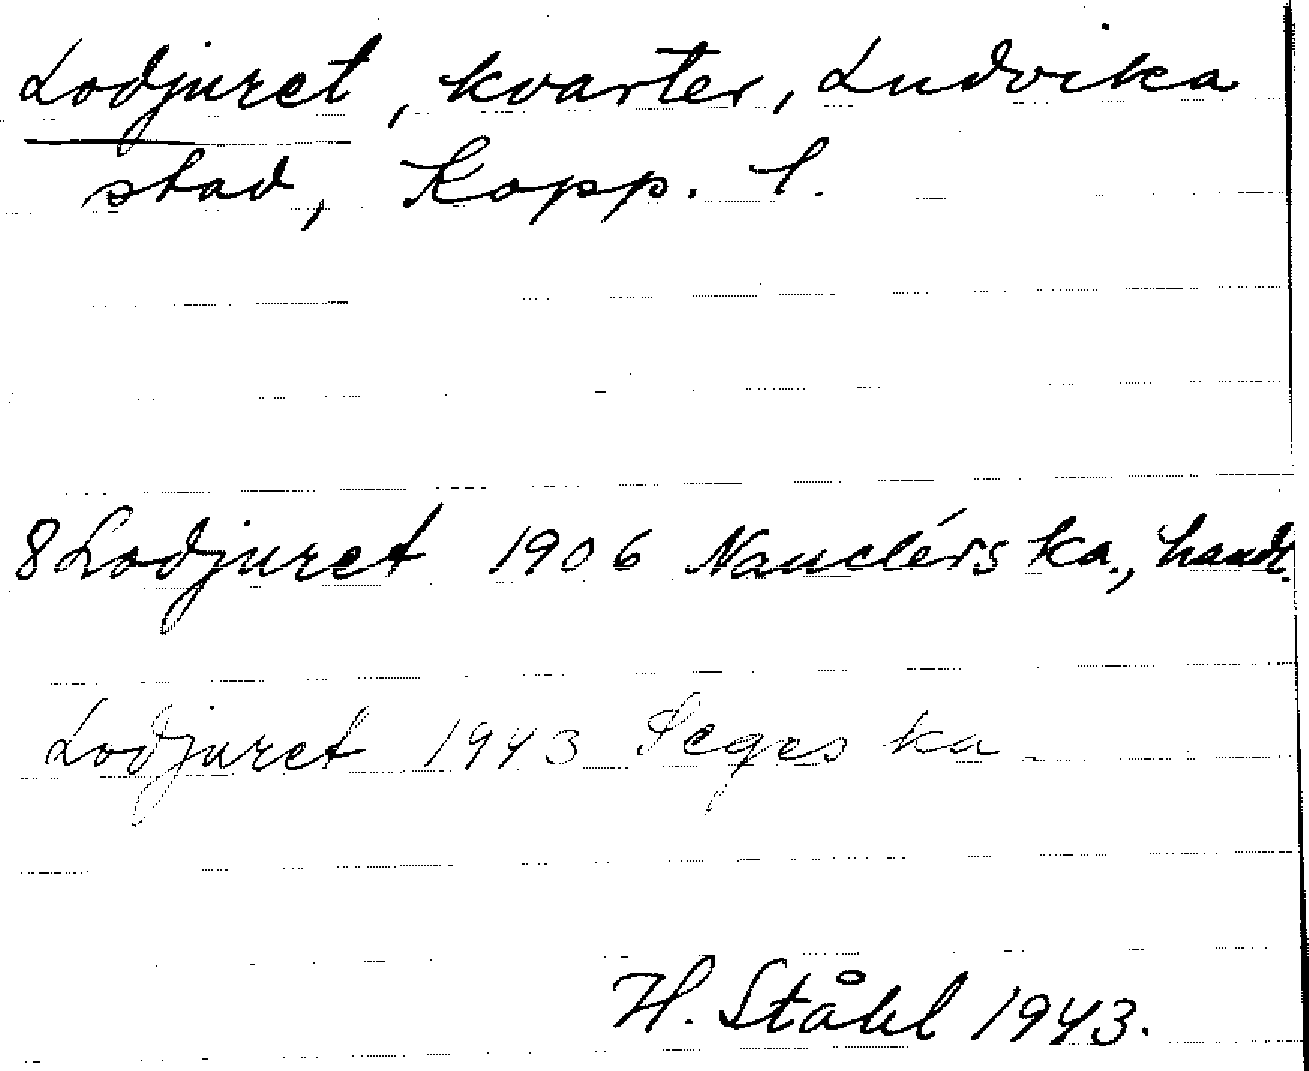 Lodjuret, kvarter, Ludvika
stad, Kopp. l.
8 Lodjuret 1906 Nauclérs ka., handl.
Lodjuret 1943 Seges ka
H. Ståhl 1943.